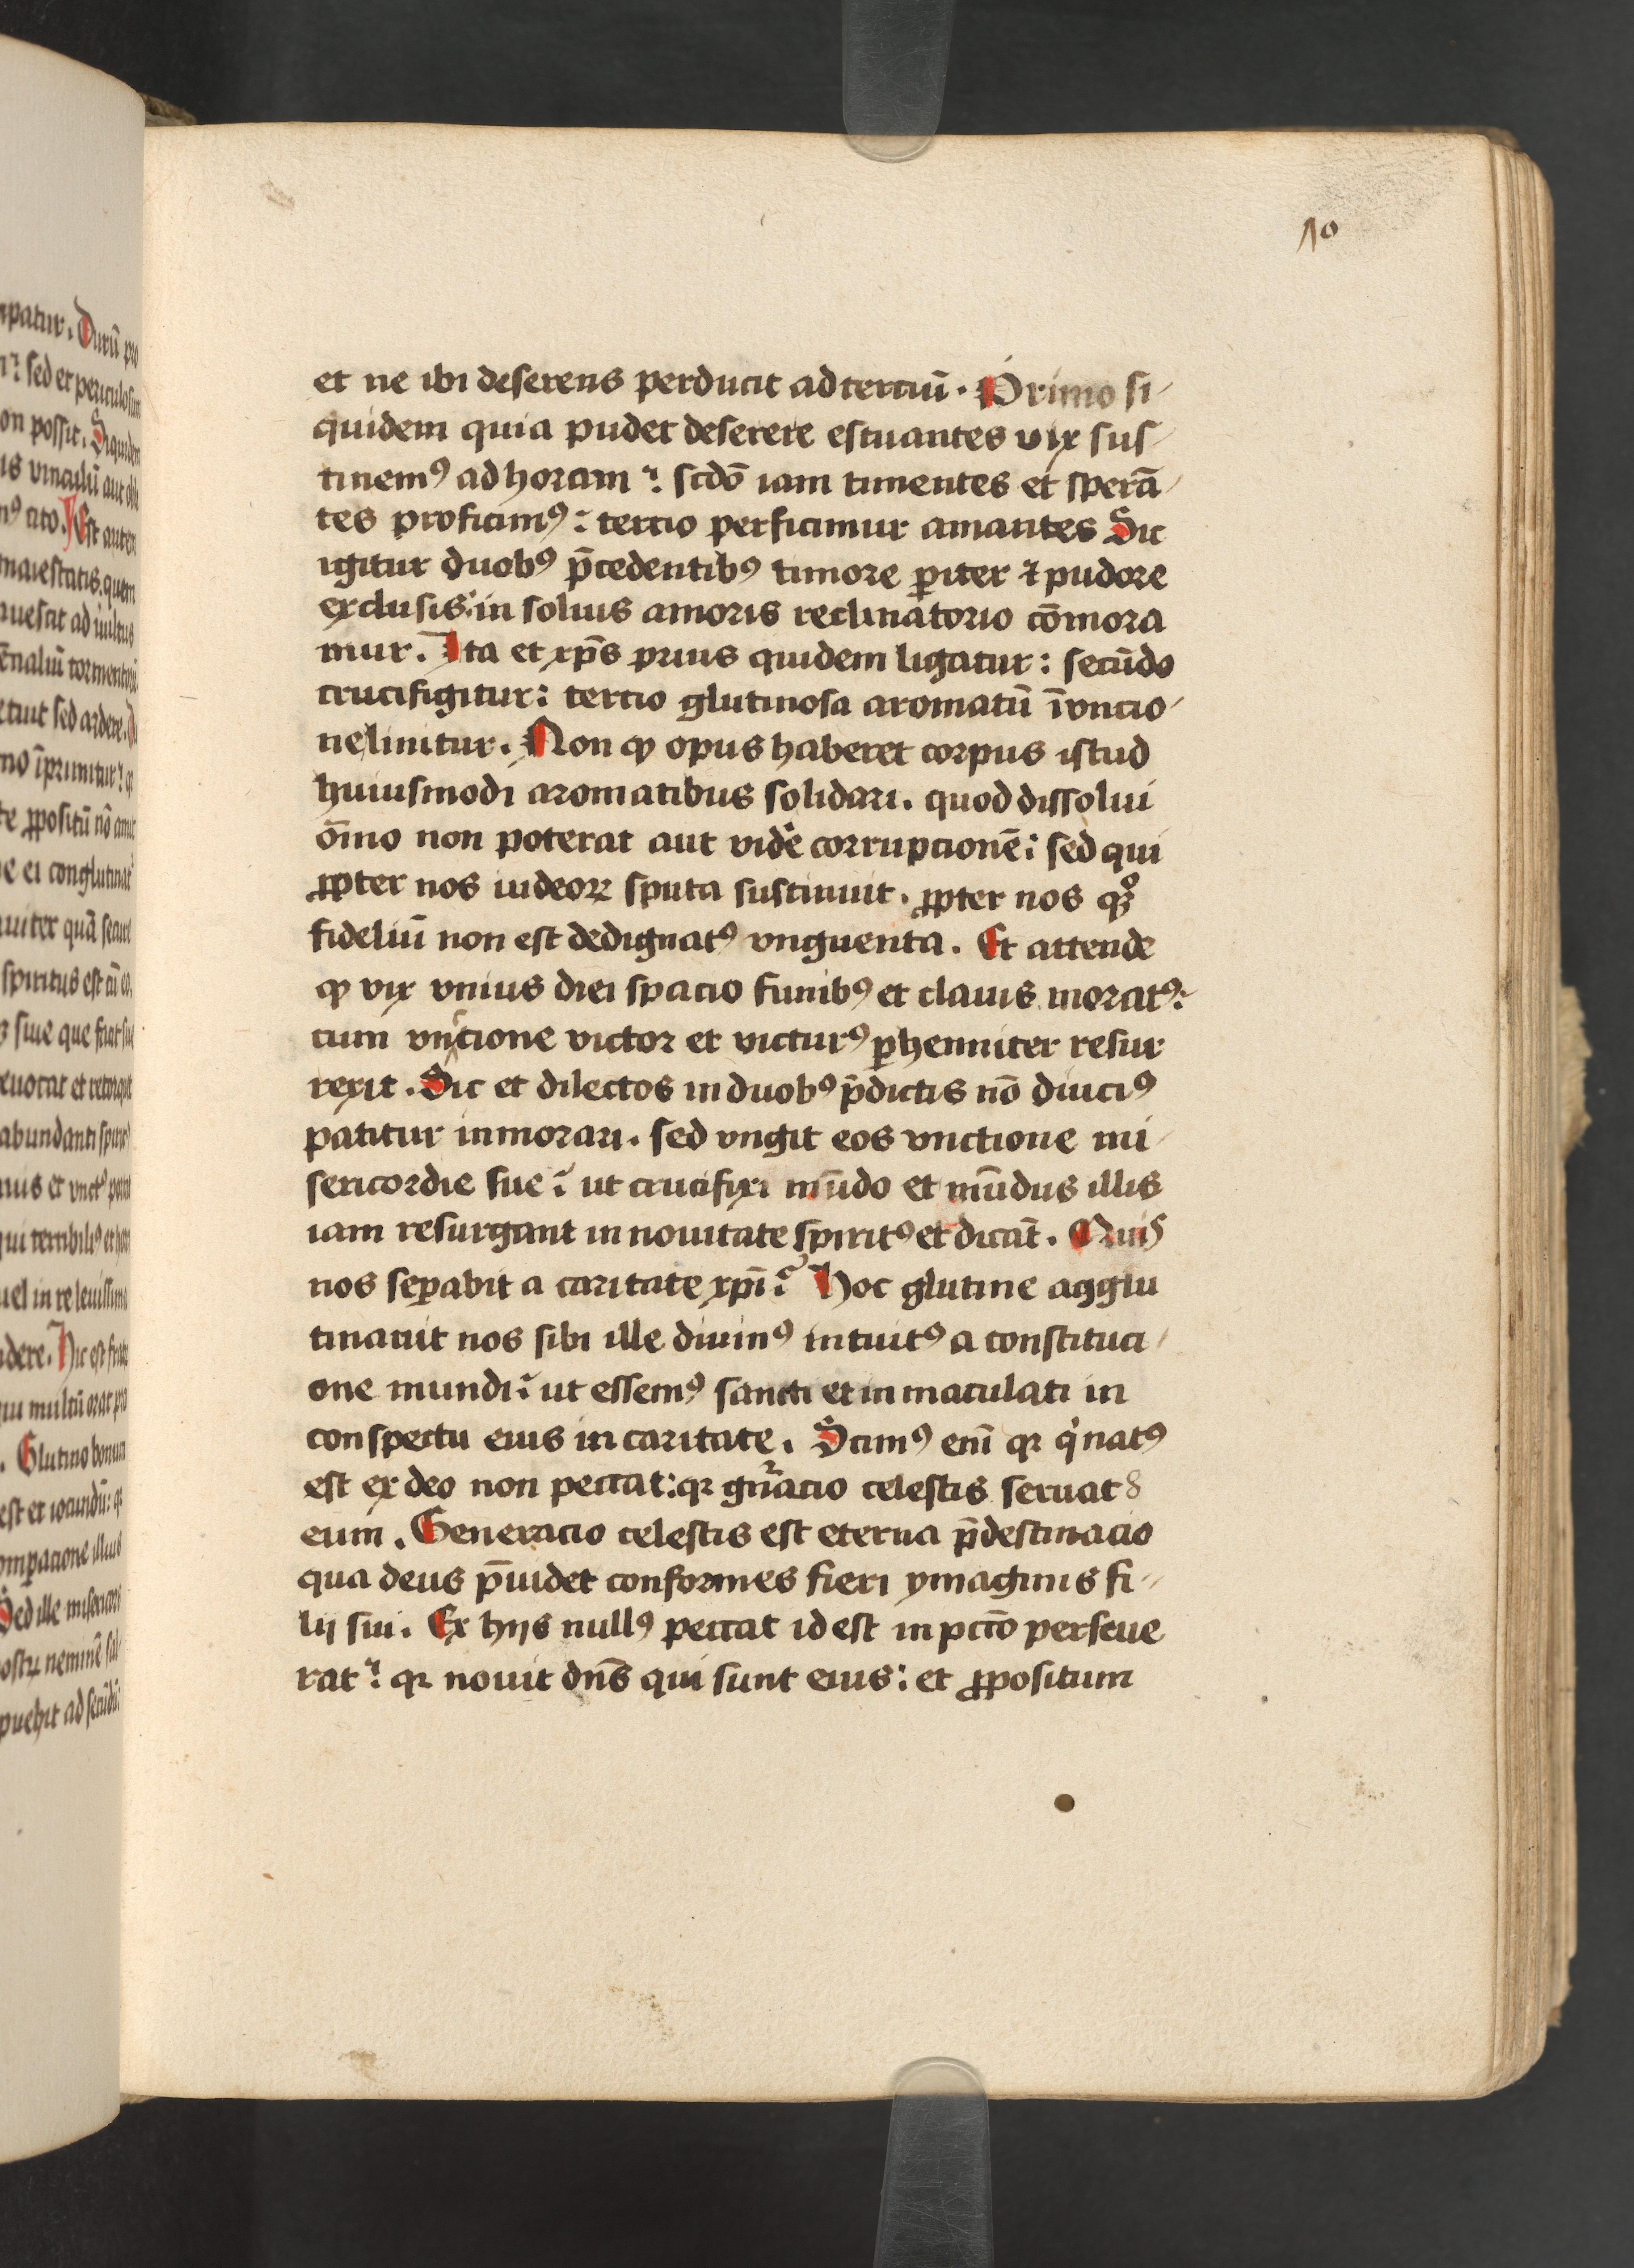 10
et ne ibi deserens perducit ad terciū. Primo si
quidem quia pudet deserere estuantes vix sus
tinemꝰ ad horam: scdō iam timentes et sperā
tes proficimꝰ: tercio perficimur amantes Sic
igitur duobꝰ p̄cedentibꝰ timore ꝑiter ⁊ pudore
exclusis: in solius amoris reclinatorio cōmora
mur. Ita et xp̄s prius quidem ligatur: secūdo
crucifigitur: tercio glutinosa aromatū īvnctio
ne linitur. Non ꝙ opus haberet corpus istud
huiusmodi aromatibus solidari. quod dissolui
ōīno non poterat aut vidē corrupcionē: sed qui
ꝓpter nos iudeoꝝ sputa sustinuit. ꝓpter nos qꝫ̊
fideliū non est dedignatꝰ vnguenta. Et attende
ꝙ vix vnius diei spacio funibꝰ et clauis moratꝰ:
cum vnctione victor et victurꝰ ꝑhenniter resur
rexit. Sic et dilectos in duobꝰ p̄dictis nō diuciꝰ
patitur inmorari. sed vngit eos vnctione mi
sericordie sue: ut crucifixi mūdo et mūdus illis
iam resurgant in nouitate spiritꝰ et dicāt. Quis
nos seꝑabit a caritate xp̄i? Hoc glutine agglu
tinauit nos sibi ille diuinꝰ intuitꝰ a constituci
one mundi: ut essemꝰ sancti et inmaculati in
conspectu eius in caritate. Scimꝰ enī qꝛ qͥ natꝰ
est ex deo non peccat: qꝛ gn̄acio celestis seruat
eum. Generacio celestis est eterna p̄destinacio
qua deus p̄uidet conformes fieri ymaginis fi
lij sui. Ex hijs nullꝰ peccat id est in pctō perseue
rat: qꝛ nouit dn̄s qui sunt eius: et ꝓpositum